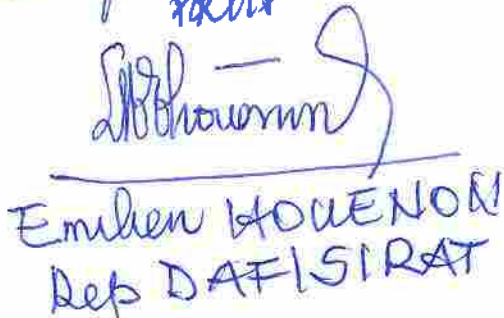 Emilien HOUENON
Rep DAF/SIRAT